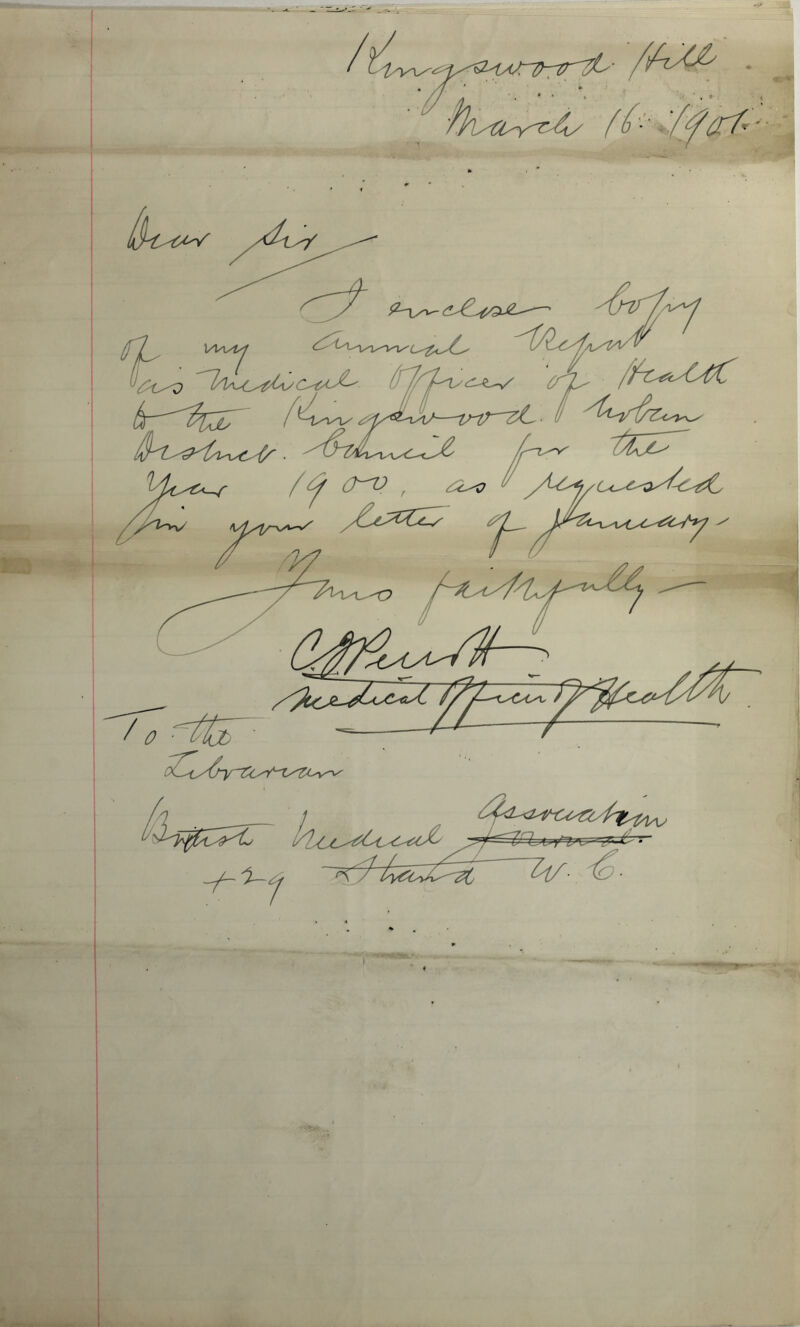 Kingswood Hill
March 16. 1901.
Dear Sir
I enclose Copy
of my annual Report
as Medical Officer of Health
to the Kingswood. Urban
District. Council for the
Year 1900, as requested
in your letter of January
Yours faithfully
C.
Medical Officer of Health
To the
Librarian
British Medical Association Journal.
429 Strand W. C.